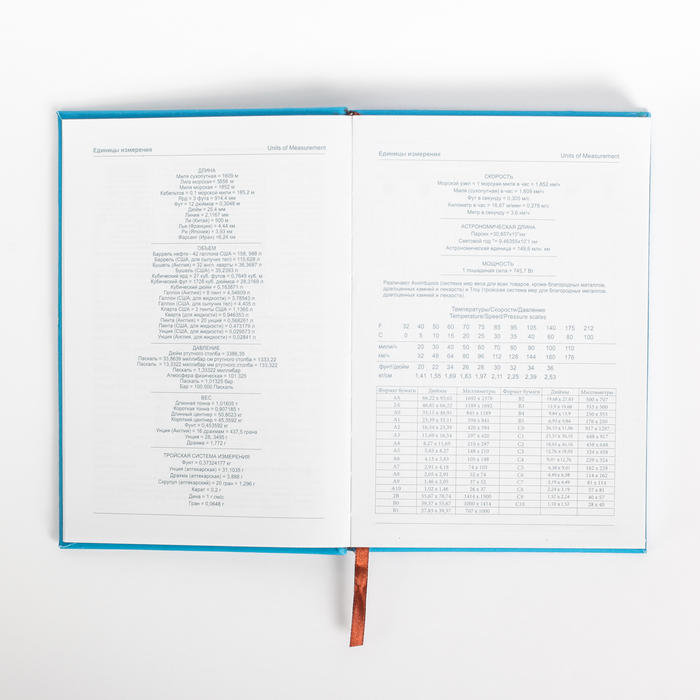 Единицы измерения
Units of Measurement
ДЛИНА
Миля сухопутная = 1609 м
Лига морская= 5556 м
Миля морская = 1852 м
Кабельтов = 0,1 морской мили = 185,2 м
Ярд = 3 фута = 914,4 мм
Фут = 12 дюймов = 0,3048 м
Дюйм = 25,4 мм
Линия = 2,1167 мм
Ли (Китай) = 500 м
Лье (Франция) = 4,44 км
Ри (Япония) = 3,93 км
Фарсанг (Иран) =6,24 км
ОБЪЕМ
Баррель нефти - 42 галлона США = 158, 988 л
Баррель (США, для сыпучих тел) = 115,628 л
Бушель (Англия) = 32 англ. кварты = 36,3687 л
Бушель (США) = 35,2393 л
Кубический ярд = 27 куб. футов = 0,7645 куб. м
Кубический фут = 1728 куб. дюймов = 28,3169 л
Кубический дюйм = 0,163871 л
Галлон (Англия) = 8 пинт = 4,54609 л
Галлон (США, для жидкости) = 3,78543 л
Галлон (США, для сыпучих тел) = 4,405 л
Кларта США = 2 пинты США = 1,1365 л
Кварта (для жидкости) = 0,946353 л
Пинта (Англия) = 20 унция = 0,568261 л
Пинта (США, для жидкости) = 0,473179 л
Унция (США, для жидкости) = 0,029573 л
Унция (Англия, для жидкости) = 0,02841 л
ДАВЛЕНИЕ
Дюйм ртутного столба = 3386,39
Паскаль= 33,8639 миллибар= миллиметр ртутного столба = 1333,22
Паскаль = 13,3322 миллибар см ртутного столба = 1333,22
Паскаль = 1,33322 миллибар
Атмосфера физическая = 101,325
Паскаль = 1,01325 бар
Бар = 100.000 Паскаль
ВЕС
Длинная тонна = 1,01605 т
Короткая тонна = 0,907185 т
Длинный центнер = 50,8023 кг
Короткий центнер =45,3592 кг
Фунт = 0,453592 кг
Унция (Англия) = 16 драхмам = 437,5 грана
Унция = 28, 3495 г
Драхма = 1,772 г
ТРОЙСКАЯ СИСТЕМА ИЗМЕРЕНИЯ
Фунт = 0,37324177 кг
Унция (аптекарский) = 31,1035 г
Драхма (аптекарская) = 3,888 г
Скрупул (аптекарский) = 20 гран = 1,296 г
Карат = 0,2 г
Дина = 1 г см/с
Гран = 0,0648 г
Единицы измерения
Units of Measurement
СКОРОСТЬ
Морской узел = 1 морская миля в час = 1,852 км/ч
Миля (сухопутная) в час = 1,609 км/ч
Фут в секунду = 0,305 м/с
Километр в час = 16,67 м/мин = 0,278 м/с
Метр в секунду = 3,6 км/ч
АСТРОНОМИЧЕСКАЯ ДЛИНА
Световой год
Астрономическая единица = 149,6 млн. км
МОЩНОСТЬ
1 лошадиная сила = 745,7 Вт
Различают Avoirdupois (система мер веса для всех товаров, кроме благородных металлов,
драгоценных камней и лекарств) и Troy (тройская система мер для благородных металлов,
драгоценных камней и лекарств).
Температуры/Скорости/Давление
Temperature/Speed/Pressure scales
F 32 40 50 60 70 75 85 95 105 140 175 212
C 0 5 10 15 20 25 30 35 40 60 80 100
мили/ч 20 30 40 50 60 70 80 90 100 110
км/ч 32 48 64 80 96 112 128 144 160 176
фунт/дюйм 20 22 24 26 28 30 32 34 36
кг/см 1,41 1,55 1,69 1,83 1,97 2,11 2,25 2,39 2,53
Формат бумаги Дюймы Миллиметры Формат бумаги Дюймы Миллиметры
4A 66,22 x 93,62 1682 x 2378 B2 19,68 x 27,83 500 x 707
2A 46,81 x 66,22 1189 x 1682 B3 13,9 x 19,68 353 x 500
A0 33,11 x 46,81 841 x 1189 B4 9,84 x 13,9 250 x 353
A1 23,39 x 33,11 594 x 841 B5 6,93 x 9,84 176 x 250
A2 16,54 x 23,39 420 x 594 C0 36,10 x 51,06 917 x 1297
A3 11,69 x 16,54 297 x 420 C1 25,51 x 36,10 648 x 917
A4 8,27 x 11,69 210 x 297 C2 18,03 x 25,51 458 x 648
A5 5,83 x 8,27 148 x 210 C3 12,76 x 18,03 324 x 458
A6 4,13 x 5,83 105 x 148 C4 9,01 x 12,76 229 x 324
A7 2,91 x 4,13 74 x 105 C5 6,38 x 9,01 162 x 229
A8 2,05 x 2,91 52 x 74 C6 4,49 x 6,38 114 x 162
A9 1,46 x 2,05 37 x 52 C7 3,19 x 4,49 81 x 114
A10 1,02 x 1,46 26 x 37 C8 2,24 x 3,19 57 x 81
2B 55,67 x 78,74 1414 x 1500 C9 1,57 x 2,24 40 x 57
B0 39,37 x 55,67 1000 x 1414 C10 1,10 x 1,57 28 x 40
B1 27,83 x 39,37 707 x 1000